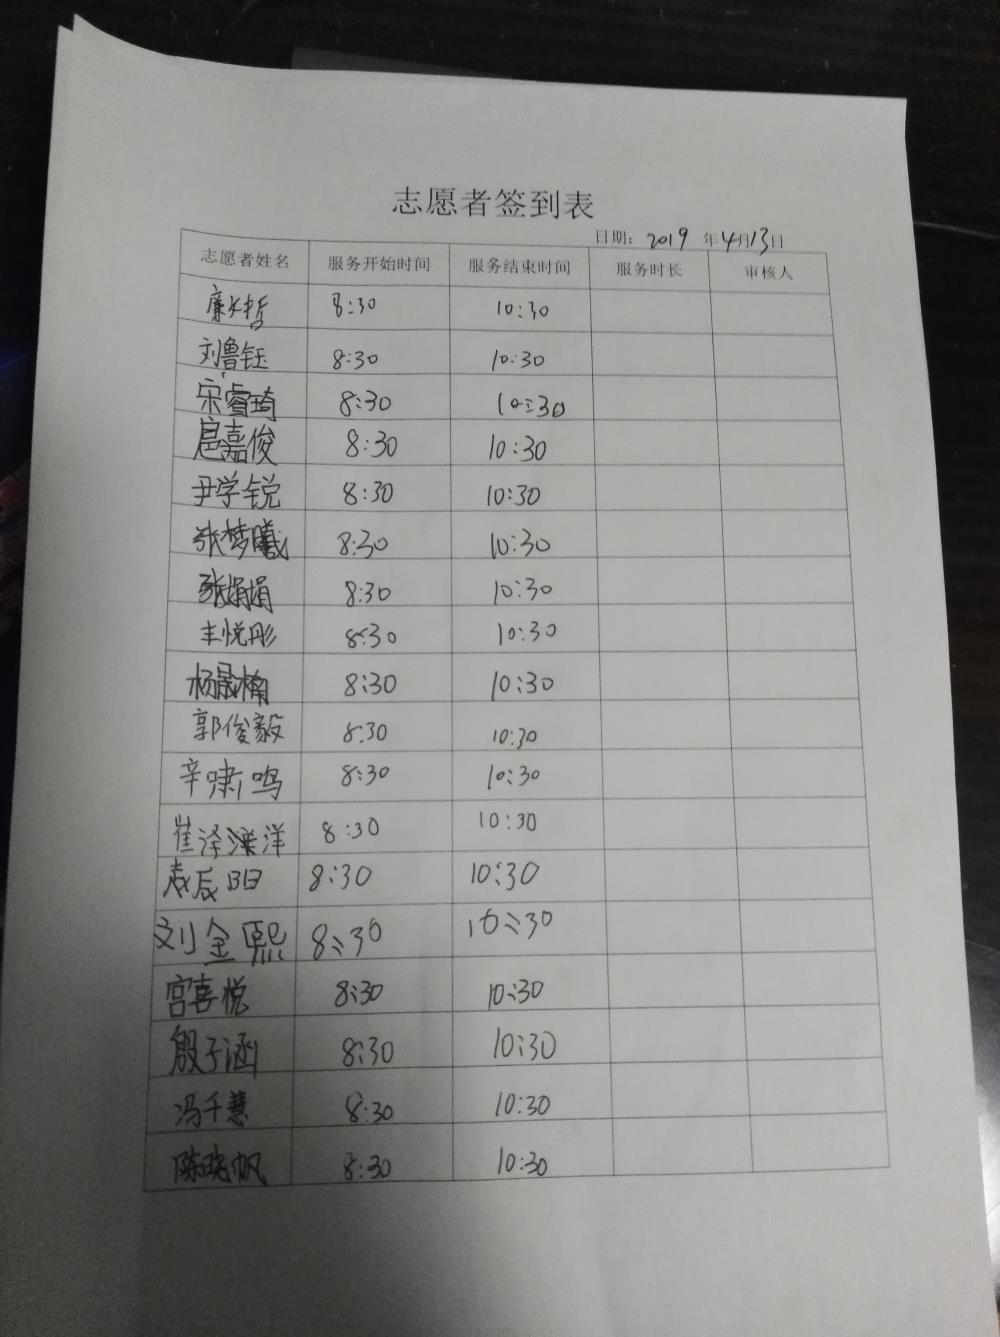 志愿者签到表
日期: 2019 年4月13日
志愿者姓名 服务开始时间 服务结束时间 服务时长 审核人
8:30 10:30
刘鲁钰 8:30 10:30
宋睿琦 8:30 10:30
扈嘉俊 8:30 10:30
尹学锐 8:30 10:30
张梦曦 8:30 10:30
张娟娟 8:30 10:30
丰悦彤 8:30 10:30
杨晟楠 8:30 10:30
郭俊毅 8:30 10:30
辛啸鸣 8:30 10:30
崔泽洋 8:30 10:30
8:30 10:30
刘金熙 8:30 10:30
宫喜悦 8:30 10:30
殷子涵 8:30 10:30
冯千慧 8:30 10:30
陈晓帆 8:30 10:30